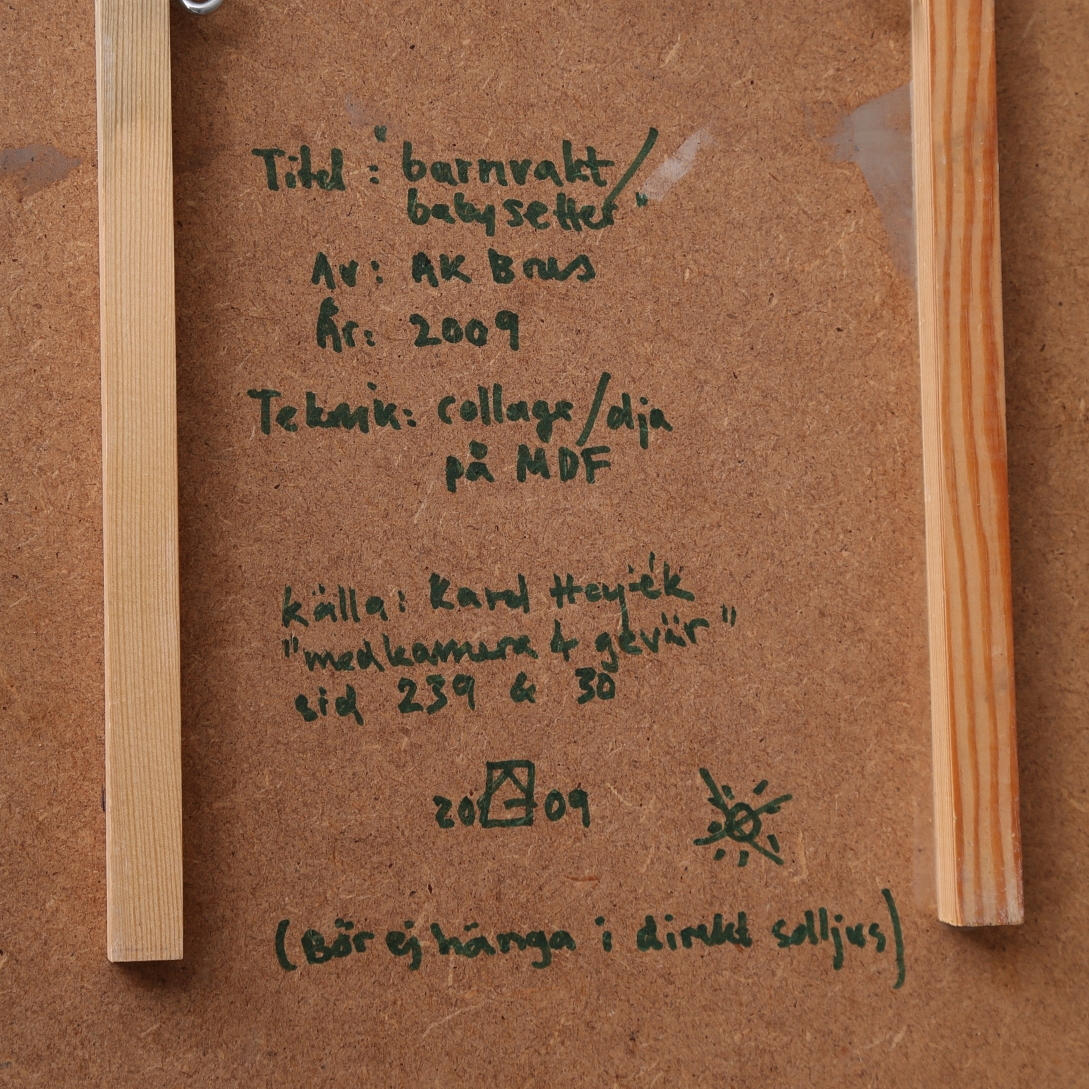 Titel: "barnvakt/
babysetter"
Av: AK Brus
År: 2009
Teknik: collage/olja
på MDF
källa: Karel
"med kamera & gevär"
sid 239 & 30
20 09
(Bör ej hänga i direkt solljus)